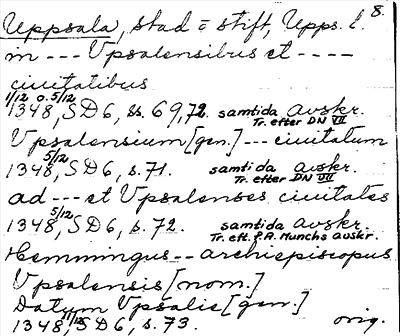 8.
Uppsala, stad o. stift, Upps. l.
m --- Vpsalensibus et ----
ciuitatibus
1/12 o. 5/12
1348, SD6, ss. 69, 72. samtida avskr.
Tr. efter DN VII
Vpsalensium [gen.] --- ciuitatum
5/12
1348, SD6, s. 71. samtida avskr.
Tr. efter DN VII
ad --- et Vpsalenses ciuitates
5/12
1348, SD6, s. 72. samtida avskr.
Tr. eft. P.A. Munchs avskr.
Hemmingus -- archiepiscopus
Vpsalensis [nom.]
Datum Vpsalie [gen.]
1348, SD6, s. 73. orig.